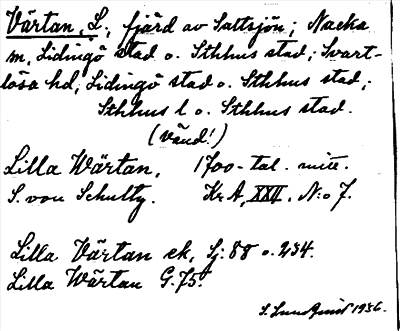 Värtan, L., fjärd av Saltsjön; Nacka
m, Lidingö stad o. Sthlms stad; Svart-
lösa hd, Lidingö stad o. Sthlms stad;
Sthlms l o. Sthlms stad.
(vänd!)
Lilla Wärtan, 1700-tal. mitt.
S. von Schultz. Kr A, XXII, N:o 7.
Lilla Värtan ek, Sj: 88 o. 234.
Lilla Wärtan G. 75.
S. Lundquist 1936.